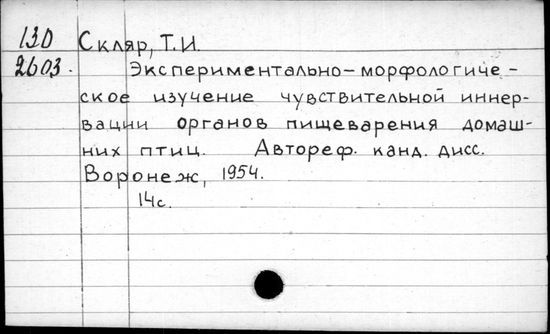 130 Скляр, Т.И.
2603. Экспериментально-морфологиче-
ское изучение чувствительной иннер-
вации органов пищеварения домаш-
них птиц. Автореф. канд. дисс.
Воронеж, 1954.
14с.